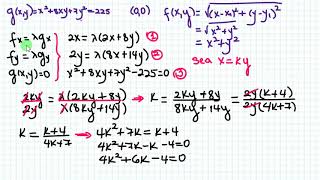 g(x,y)=x²+8xy+7y²=225 (0,0) f(x,y)=√(x-x₁)²+(y-y₁)²
=√x²+y²
=x²+y²
fx=λgx 2x=λ(2x+8y) ①
fy=λgy 2y=λ(8x+14y) ②
g(x,y)=0 x²+8xy+7y²-225=0 ③
sea x=ky
2ky/2y=λ(2ky+8y)/λ(8ky+14y) → k=2ky+8y/8ky+14y=2y(k+4)/2y(4k+7)
k=k+4/4k+7 → 4k²+7k=k+4
4k²+7k-k-4=0
4k²+6k-4=0